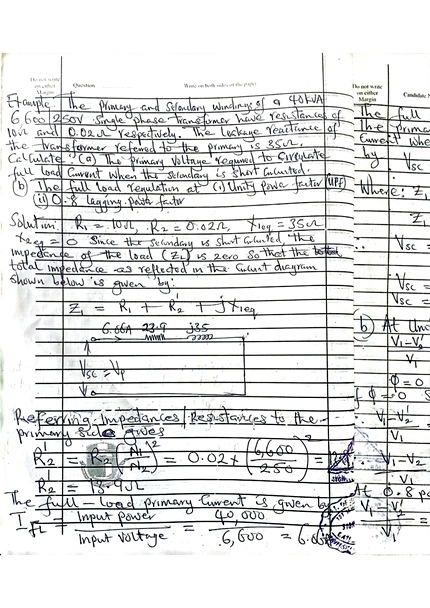 Do not write
on either
Margin
Question
Write on both sides of the paper
Example: The primary and secondary windings of a 40KVA
6,600/250V Single phase transformer have resistances of
10Ω and 0.02Ω respectively. The leakage reactance of
the transformer referred to the primary is 35Ω.
Calculate (a) The primary Voltage required to Circulate
full load Current when the secondary is Short Circuited.
(b) The full load regulation at (i) Unity Power factor (UPF)
(ii) 0.8 lagging power factor
Solution: R₁ = 10Ω, R₂ = 0.02Ω, X1eq = 35Ω
X2eq = 0 Since the Secondary is short Circuited, the
impedance of the load (ZL) is zero so that the
total impedance as reflected in the Circuit diagram
shown below is given by:
Z₁ = R₁ + R₂' + jX1eq
6.06A 23.9 j35
Vsc = Vp
Referring Impedances/Resistances to the
primary side gives
R₂' = R₂ (N₁/N₂)² = 0.02 x (6,600/250)² =
R₂' = 13.9Ω
The full-load primary Current is given by
IFL = Input power / Input Voltage = 40,000 / 6,600 = 6.06
Do not write
on either
Margin
Candidate
The full
The prima
Current whe
by
Vsc
Where: Z₁
Z₁
∴ Vsc =
Vsc =
Vsc =
(b) At Un
V₁-V₂'
V₁
φ = 0
If φ = 0
V₁-V₂'
V₁
∴ V₁-V₂
V₁
At 0.8 p
V₁-V₂'
V₁